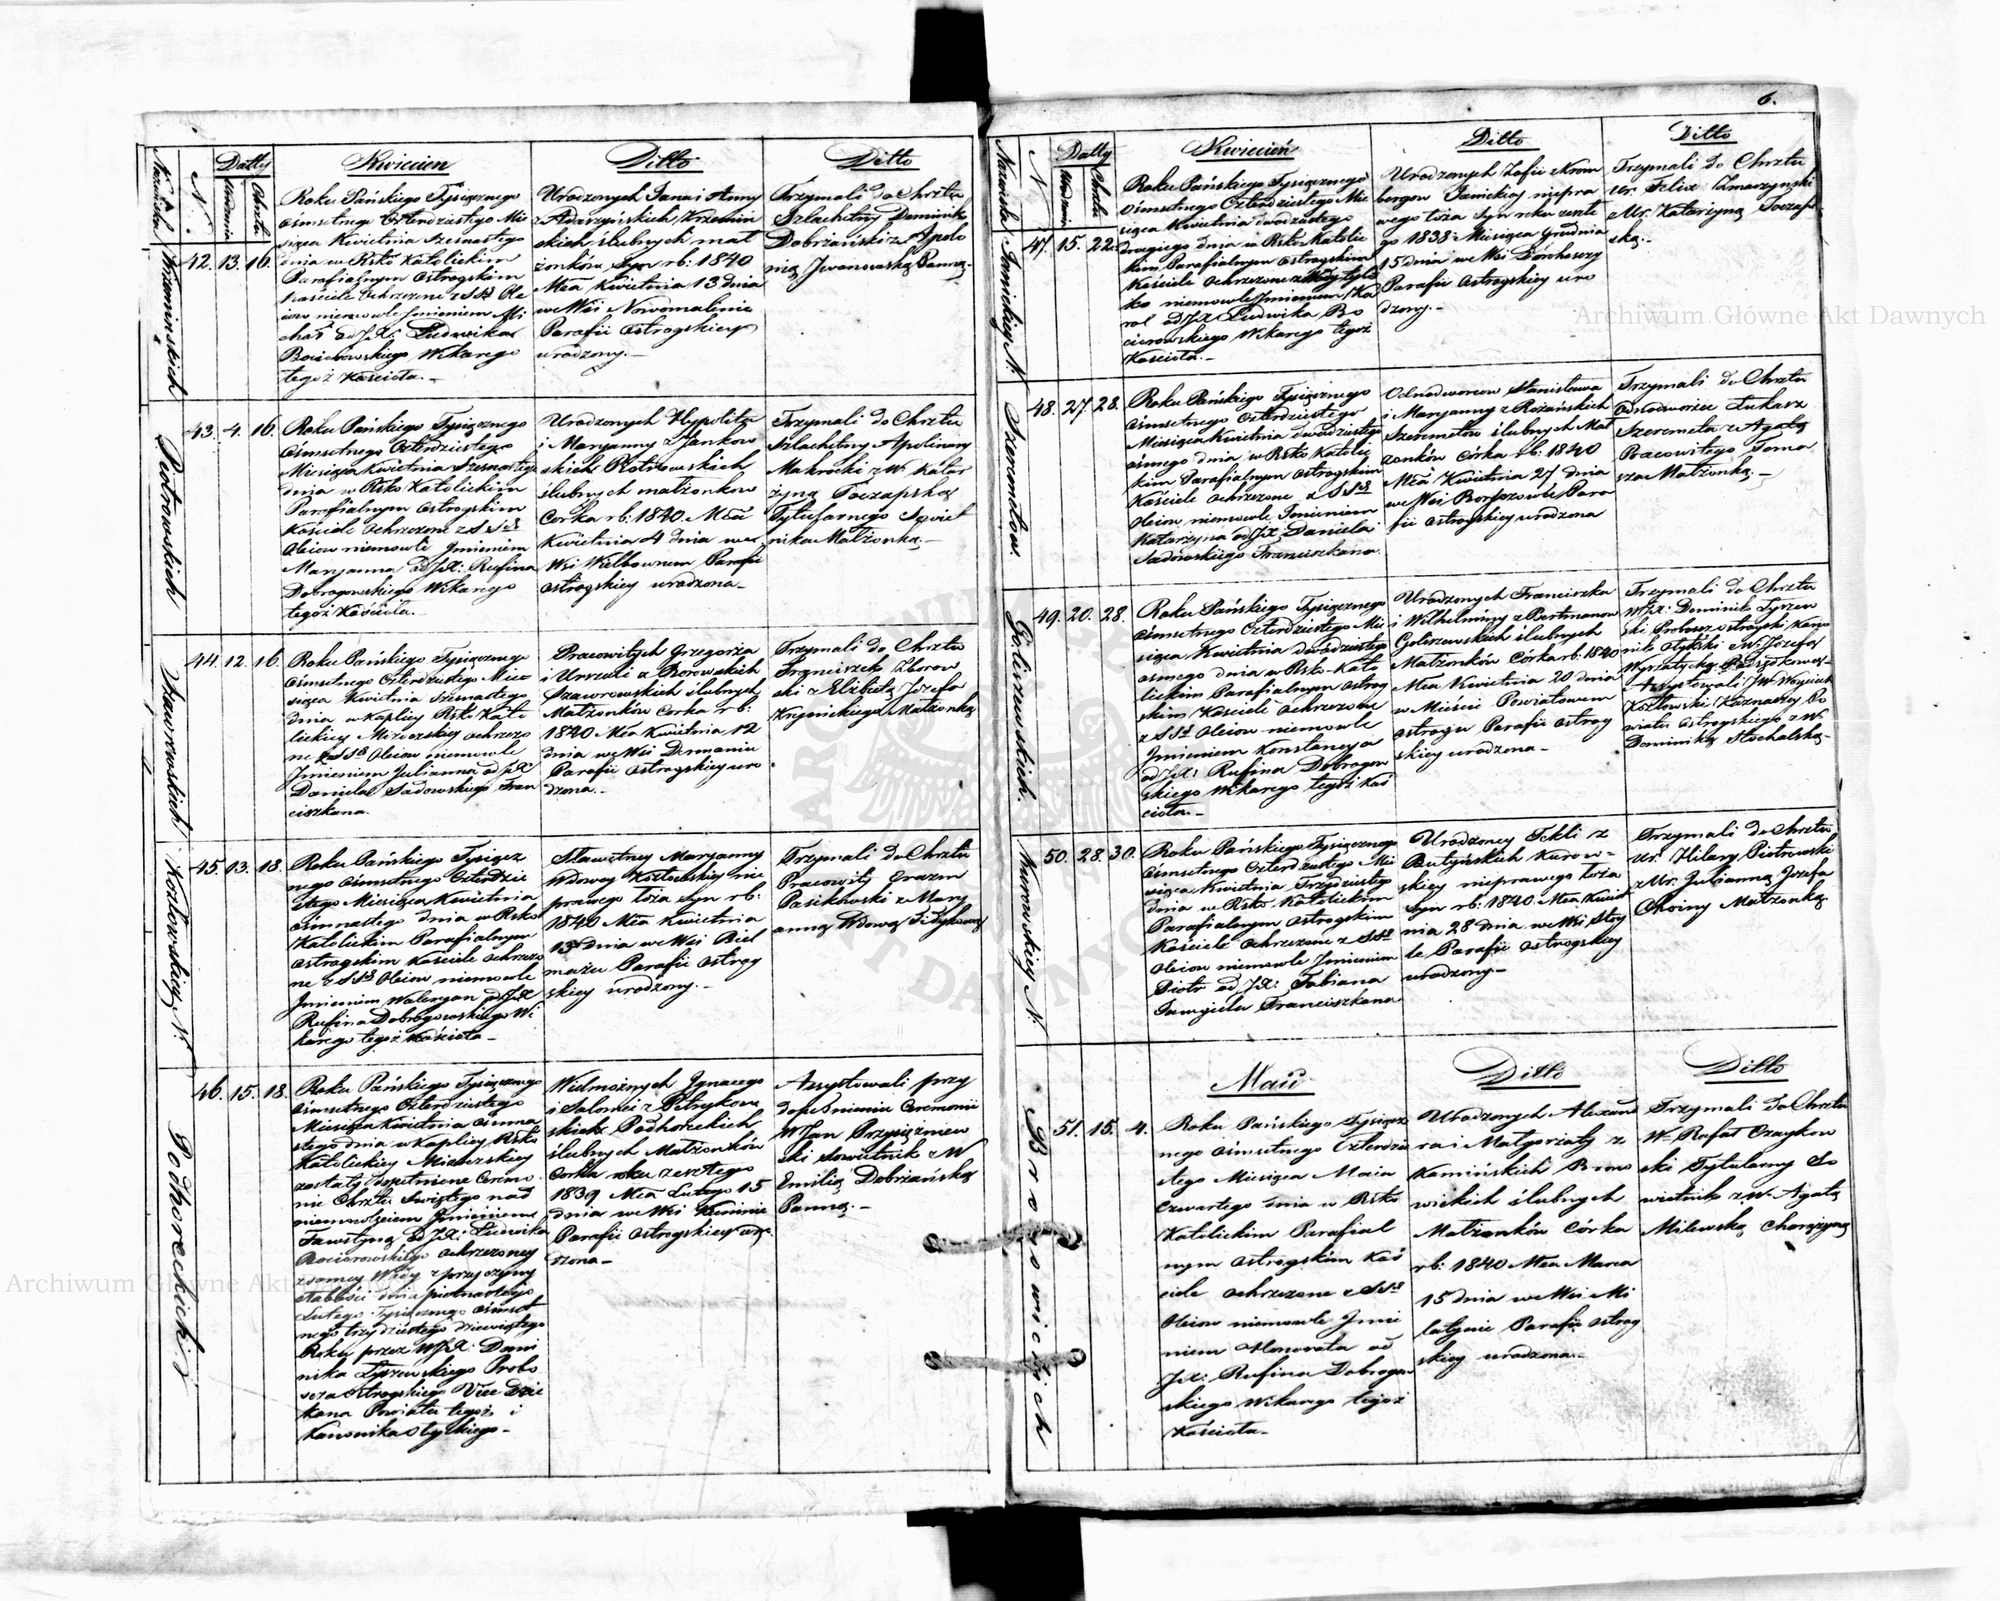 6.
Nazwiska
N.
Datty
Urodzenia
Chrztu
Kwiecien
Ditto
Ditto
Krzeminskich
42. 13. 16.
Roku Pańskiego Tysięcznego
ośmsetnego Czterdziestego Mie
siąca Kwietnia Szesnastego
dnia w Rsko Katolickim
Parafialnym Ostrogskim
Kościele Ochrzczone z SSS Ole
iow niemowle Jmieniem Mi
chał od JX: Ludwika
Bocierowskiego Wikarego
tegoż Kościoła.-
Urodzonych Jana i Anny
Krzemiń
skich ślubnych mał
żonków Syn rb: 1840
Mca Kwietnia 13 dnia
we Wsi Nowomalinie
Parafii Ostrogskiey
urodzony.-
Trzymali do Chrztu
Szlachetny Dominik
Dobrzański z Apolo
nią Jwanowską Panną.
Piotrowskich
43. 4. 16.
Roku Pańskiego Tysięcznego
Ośmsetnego Czterdziestego
Miesiąca Kwietnia Szesnastego
dnia w Rsko Katolickim
Parafialnym Ostrogskim
Kościele Ochrzczone z SSS
Oleiow niemowle Jmieniem
Maryanna od JX: Rufina
Dobrogowskiego Wikarego
tegoż Kościoła.-
Urodzonych Hypolita
i Maryanny z Jankow
skich Piotrowskich
ślubnych małżonkow
Corka rb: 1840 Mca
Kwietnia 4 dnia we
Wsi Wielbownem Parafii
Ostrogskiey urodzona.-
Trzymali do Chrztu
Szlachetny Apolinary
Makrocki z W. Katar
żyną Toczapską
Tytularnego Sowiet
nika Małżonką.-
Szaworowskich
44. 12. 16.
Roku Pańskiego Tysięcznego
Ośmsetnego Czterdziestego Mie
siąca Kwietnia Szesnastego
dnia w Kaplicy Rsko Kato
lickiey Mizoczskiey ochrzczo
ne z SSS Oleiow niemowle
Jmieniem Julianna od JX:
Daniela Sadowskiego Fran
ciszkana.
Pracowitych Grzegorza
i Urszuli z Borowskich
Szaworowskich ślubnych
Małżonków Corka rb:
1840 Mca Kwietnia 12
dnia we Wsi Dermaniu
Parafii Ostrogskiey uro
dzona.-
Trzymali do Chrztu
Franciszek Zborow
ski z Elżbietą Jozefa
Małżonką
Kozłowskiey N:
45. 13. 18.
Roku Pańskiego Tysięcz
nego Ośmsetnego Czterdzie
stego Miesiąca Kwietnia
ośmnastego dnia w Rsko
Katolickim Parafialnym
Ostrogskim Kościele Ochrzczo
ne z SSS Oleiow niemowle
Jmieniem Waleryan od JX
Rufina Dobrogowskiego Wi
karego tegoż Kościoła.-
Sławetney Maryanny
Wdowy Kozłowskiey nie
prawego łoża Syn rb:
1840 Mca Kwietnia
13 dnia we Wsi Biel
mażu Parafii Ostrog
skiey urodzony.-
Trzymali do Chrztu
Pracowity Erazm
Pasikowski z Mary
anną Wdową
Podhoreckich
46. 15. 18.
Roku Pańskiego Tysięcznego
Ośmsetnego Czterdziestego
Miesiąca Kwietnia Ośmna
stego dnia w Kaplicy Rsko
Katolickiey Mizoczskiey
zostały dopełnione Ceremo
nie Chrztu Świętego nad
niemowlęciem Jmieniem
Fawstyną od JX: Ludwika
Bocierowskiego Ochrzczoney
z samey Wody z przyczyny
słabości dnia piętnastego
Lutego Tysięcznego Ośmset
nego trzydziestego dziewiątego
Roku przez WJX: Domi
nika Łyszewskiego Probo
szcza Ostrogskiego Vice Dzie
kana Powiatu tegoż i
Kanonika Ołyckiego.-
Wielmożnych Jgnacego
i Salomei z Petrykow
skich Podhoreckich
ślubnych Małżonków
Corka roku zeszłego
1839 Mca Lutego 15
dnia we Wsi Kuninie
Parafii Ostrogskiey uro
dzona.-
Assystowali przy
dopełnieniu Ceremonii
W Jan Przysiężniew
ski Sowietnik z W
Emilią Dobrzańską
Panną.-
Nazwiska
N
Datty
Urodzenia
Chrztu
Kwiecień
Ditto
Ditto
Janickiey N:
47. 15. 22.
Roku Pańskiego Tysięcznego
Ośmsetnego Czterdziestego Mie
siąca Kwietnia dwudziestego
drugiego dnia w Rsko Katolic
kim Parafialnym Ostrogskim
Kościele Ochrzczone z Wody tyl
ko niemowle Jmieniem Ka
rol od JX: Ludwika Bo
cierowskiego Wikarego tegoż
Kościoła.-
Urodzonych Zofii z Krom
bergow Janickiey niepra
wego łoża Syn roku zeszłe
go 1838 Miesiąca Grudnia
15 dnia we Wsi
Parafii Ostrogskiey uro
dzony.-
Trzymali do Chrztu
Ur. Felix Zmaczynski
z Ur. Katarzyną Toczap
ską.-
Szeremetow.
48. 27. 28.
Roku Pańskiego Tysięcznego
ośmsetnego Czterdziestego
Miesiąca Kwietnia dwudziestego
ośmego dnia w Rsko Katolic
kim Parafialnym Ostrogskim
Kościele Ochrzczone z SSS
Oleiow niemowle Jmieniem
Katarzyna od JX: Daniela
Sadowskiego Franciszkana.
Odnodworcow Stanisława
i Maryanny z Rożańskich
Szeremetow ślubnych Mał
żonków Córka rb: 1840
Mca Kwietnia 27 dnia
we Wsi Borszowie Para
fii Ostrogskiey urodzona
Trzymali do Chrztu
Odnodworzec Łukasz
Szeremeta z Agatą
Pracowitego Toma
sza Małżonką.-
Goliszewskich.
49. 20. 28.
Roku Pańskiego Tysięcznego
Ośmsetnego Czterdziestego Mie
siąca Kwietnia dwudziestego
osmego dnia w Rsk. Kato
lickim Parafialnym Ostrog
skim Kościele Ochrzczone
z SSS Oleiow niemowle
Jmieniem Konstancya
od JX: Rufina Dobrogow
skiego Wikarego tegoż Koś
cioła.-
Urodzonych Franciszka
i Wilhelminy z Bartmanow
Goliszewskich ślubnych
Małżonków Córka rb: 1840
Mca Kwietnia 20 dnia
w Mieście Powiatowem
Ostrogu Parafii Ostrog
skiey urodzona.-
Trzymali do Chrztu
WJX: Dominik Łyszew
ski Proboszcz Ostrogski Kano
nik Ołycki z W. Jozefą
Assystowali JW Woyciech
Kozłowski Kaznaczey Po
wiatu Ostrogskiego z W.
Dominiką Stochalską.-
Kurowskiey N:
50. 28. 30.
Roku Pańskiego Tysięcznego
Ośmsetnego Czterdziestego Mie
siąca Kwietnia Trzydziestego
dnia w Rsko Katolickim
Parafialnym Ostrogskim
Kościele Ochrzczone z SSS
Oleiow niemowle Jmieniem
Piotr od JX: Fabiana
Franciszkana
Urodzoney Tekli z
Butyńskich Kurow-
skiey nieprawego łoża
Syn rb: 1840 Mca Kwiet
nia 28 dnia we Wsi Stoy
le Parafii Ostrogskiey
urodzony.-
Trzymali do Chrztu
Ur. Hilary Piotrowski
z Ur. Julianną Jozefa
Choiny Małżonką.
Maii
Ditto
Ditto
Bronowickich
51. 15. 4.
Roku Pańskiego Tysięcz
nego Ośmsetnego Czterdzie
stego Miesiąca Maia
Czwartego dnia w Rsko
Katolickim Parafial
nym Ostrogskim Koś
ciele Ochrzczone z SSS
Oleiow niemowle Jmie
niem Honorata od
JX: Rufina Dobrogow
skiego Wikarego tegoż
Kościoła.-
Urodzonych Alexand
ra i Małgorzaty z
Kamińskich Brono
wickich ślubnych
Małżonków Córka
rb: 1840 Mca Marca
15 dnia we Wsi Mi
latynie Parafii Ostrog
skiey urodzona.-
Trzymali do Chrztu
W. Rafał Czaykow
ski Tytularny So
wietnik z W. Agatą
Milewską Chorążyną
Archiwum Główne Akt Dawnych
Archiwum Główne Akt Dawnych